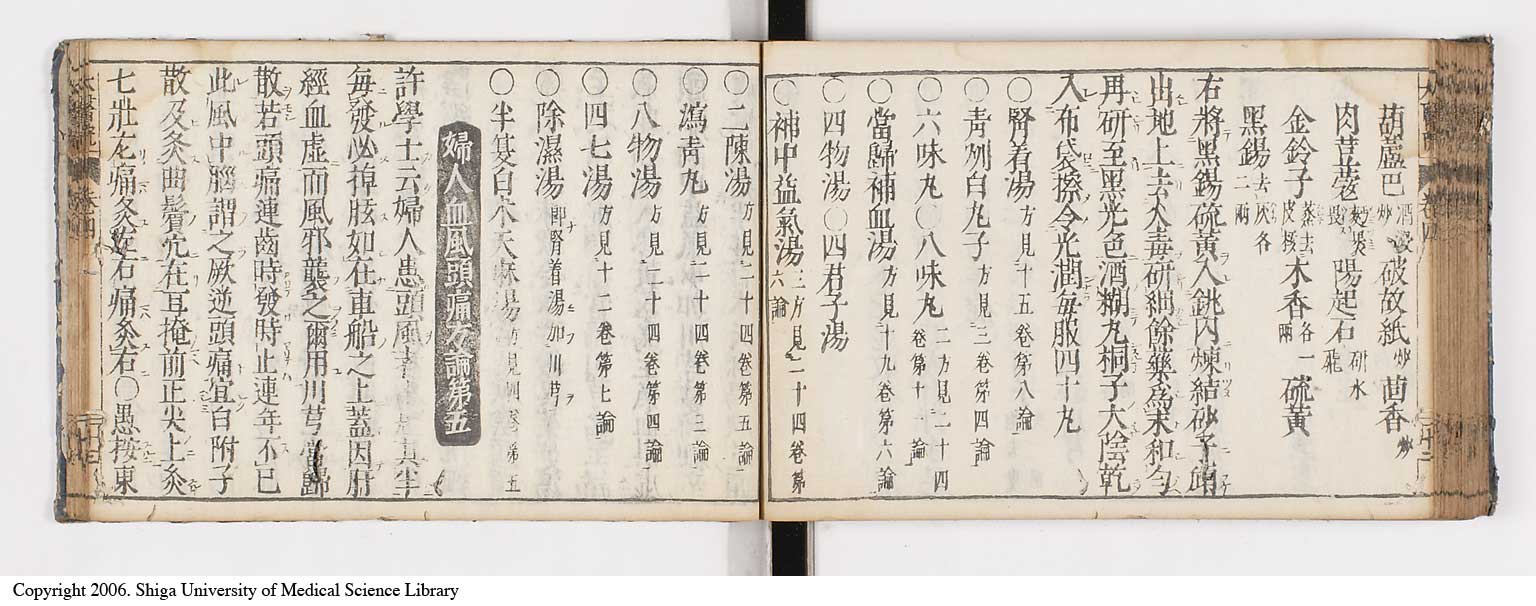 葫蘆巴酒浸炒破故紙炒茴香炒
肉荳蔲陽起石研水飛
金鈴子蒸去皮核木香各一兩硫黄
黑錫去灰各二兩
右將黑錫硫黄入銚内煉結砂子
出地上去火毒研細餘藥爲末和勻
再研至黑光色酒糊丸桐子大陰乾
入布袋擦令光潤毎服四十丸
〇腎着湯方見十五卷第八論
〇青州白丸子方見三卷第四
〇六味丸〇八味丸二方見二十四卷第十一論
〇當歸補血湯方見十九卷第六論
〇四物湯〇四君子湯
〇補中益氣湯三方見二十四卷第六論
〇二陳湯方見二十四卷第五論
〇瀉青丸方見二十四卷第三論
〇八物湯方見二十四卷第四論
〇四七湯方見十二卷第七論
〇除濕湯即腎着湯加川芎
〇半夏白朮天麻湯方見四卷第五
婦人血風頭痛方論第五
許學士云婦人患頭風者十居其半
毎發必掉眩如在車船之上蓋因肝
經血虚而風邪襲之爾用川芎當歸
散若頭痛連齒時發時止連年不已
此風中腦謂之厥逆頭痛宜白附子
散及灸曲鬢穴在耳掩前正尖上灸
七壯左痛灸左右痛灸右〇愚按東
Copyright 2006. Shiga University of Medical Science Library